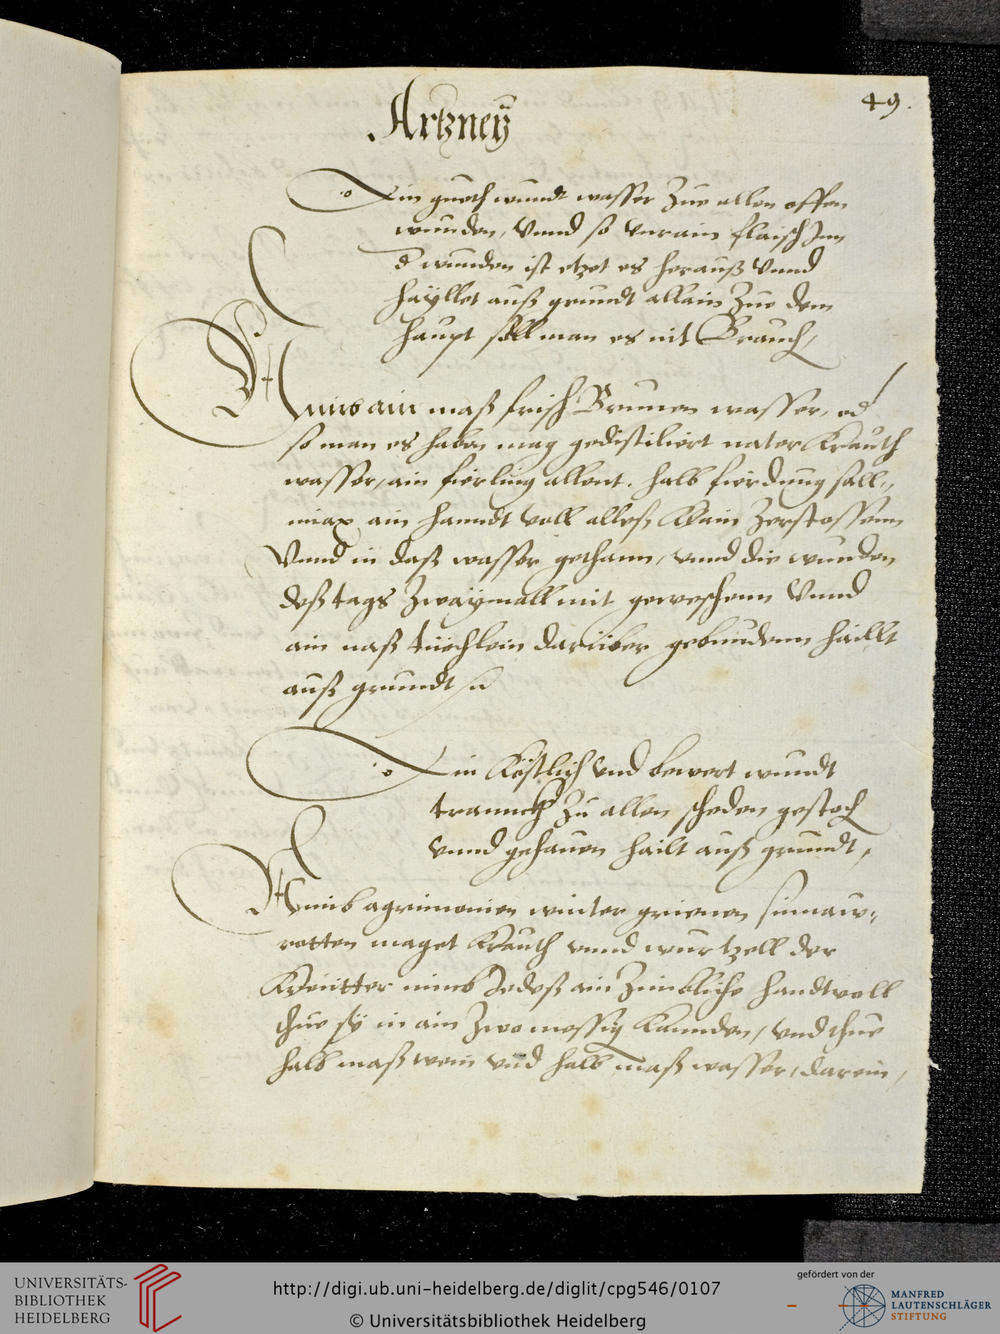 Artzney
49.
Ein gueth wundt wasser Zue allen offen
wunden, Vnnd so vnrain flaisch Inn
d wunden ist etzet es herauß Vnnd
haÿllet auß grundt allain Zue dem
haupt soll man es nit Brauch,
Nimb ain maß frisch Brunen wasser, od
so man es haben mag gedistiliert nater Krauth
wasser, ain fierling allent. halb fierdung sall„
miax ain handt voll alleß Klain Zerstossenn
Vnnd in daß wasser gethann, vnnd die wunden
deß tags Zwaÿmall mit geweschenn Vnnd
ain naß tüechlein darüber gebundenn haillt
auß grundt
Ein Köstlich vnd bewert wundt
trannckh Zu allen scheden gestoch
vnnd gehauen hailt auß grundt,
Nimb agrimonien winter grienen sinnaw,
rotten maget Krauth vnnd wurtzell der
Kreütter nimb Jedeß ain Zimbliche handtvoll
thue sÿ in ain Zwo messig Kannden, vnd thue
halb maß wein vnd halb maß wasser, darein,
UNIVERSITÄTS-
BIBLIOTHEK
HEIDELBERG
http://digi.ub.uni-heidelberg.de/diglit/cpg546/0107
© Universitätsbibliothek Heidelberg
gefördert von der
MANFRED
LAUTENSCHLÄGER
STIFTUNG